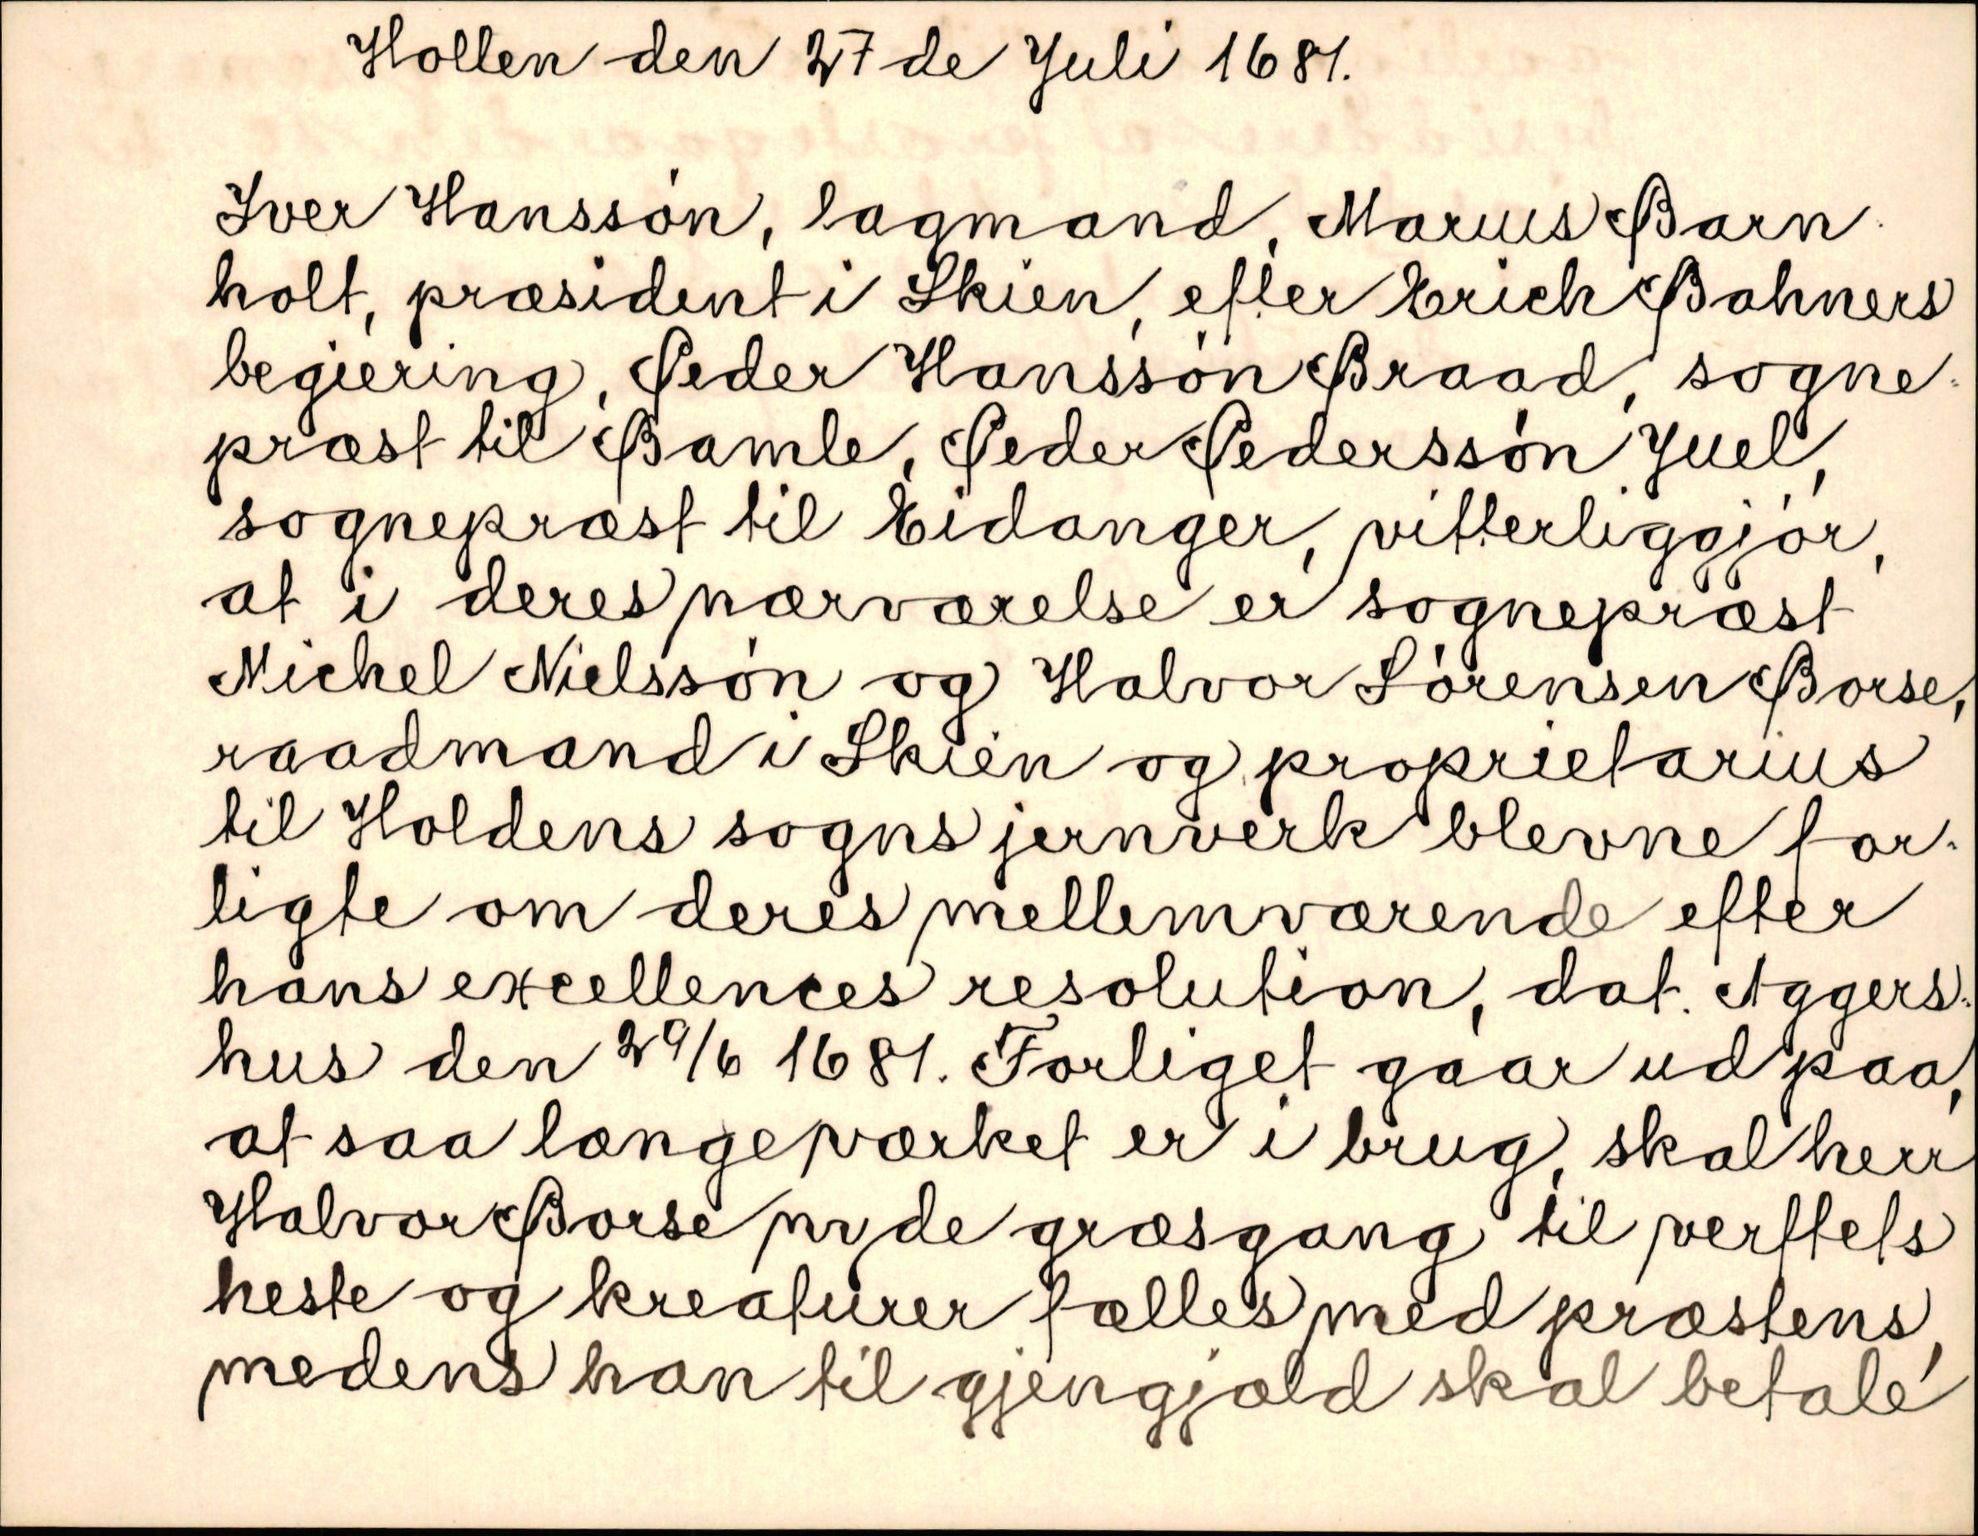 Hollen den 27de Juli 1681.
Iver Hanssøn, lagmand, Marius Barn-
holt, præsident i Skien, efter Erich Bahners
begjering, Peder Hanssøn Braad, sogne-
præst til Bamle, Peder Pederssøn Juel,
sognepræst til Eidanger, vitterliggjør,
at i deres nærværelse er sognepræst
Michel Nielssøn og Halvor Sørensen Borse,
raadmand i Skien og proprietarius
til Holdens sogns jernverk blevne for-
ligte om deres mellemværende efter
hans excellences resolution, dat. Aggers-
hus den 29/6 1681. Forliget gaar ud paa,
at saa længe værket er i brug, skal herr
Halvor Borse nyde græsgang til verftets
heste og kreaturer fælles med præstens,
medens han til gjengjæld skal betale